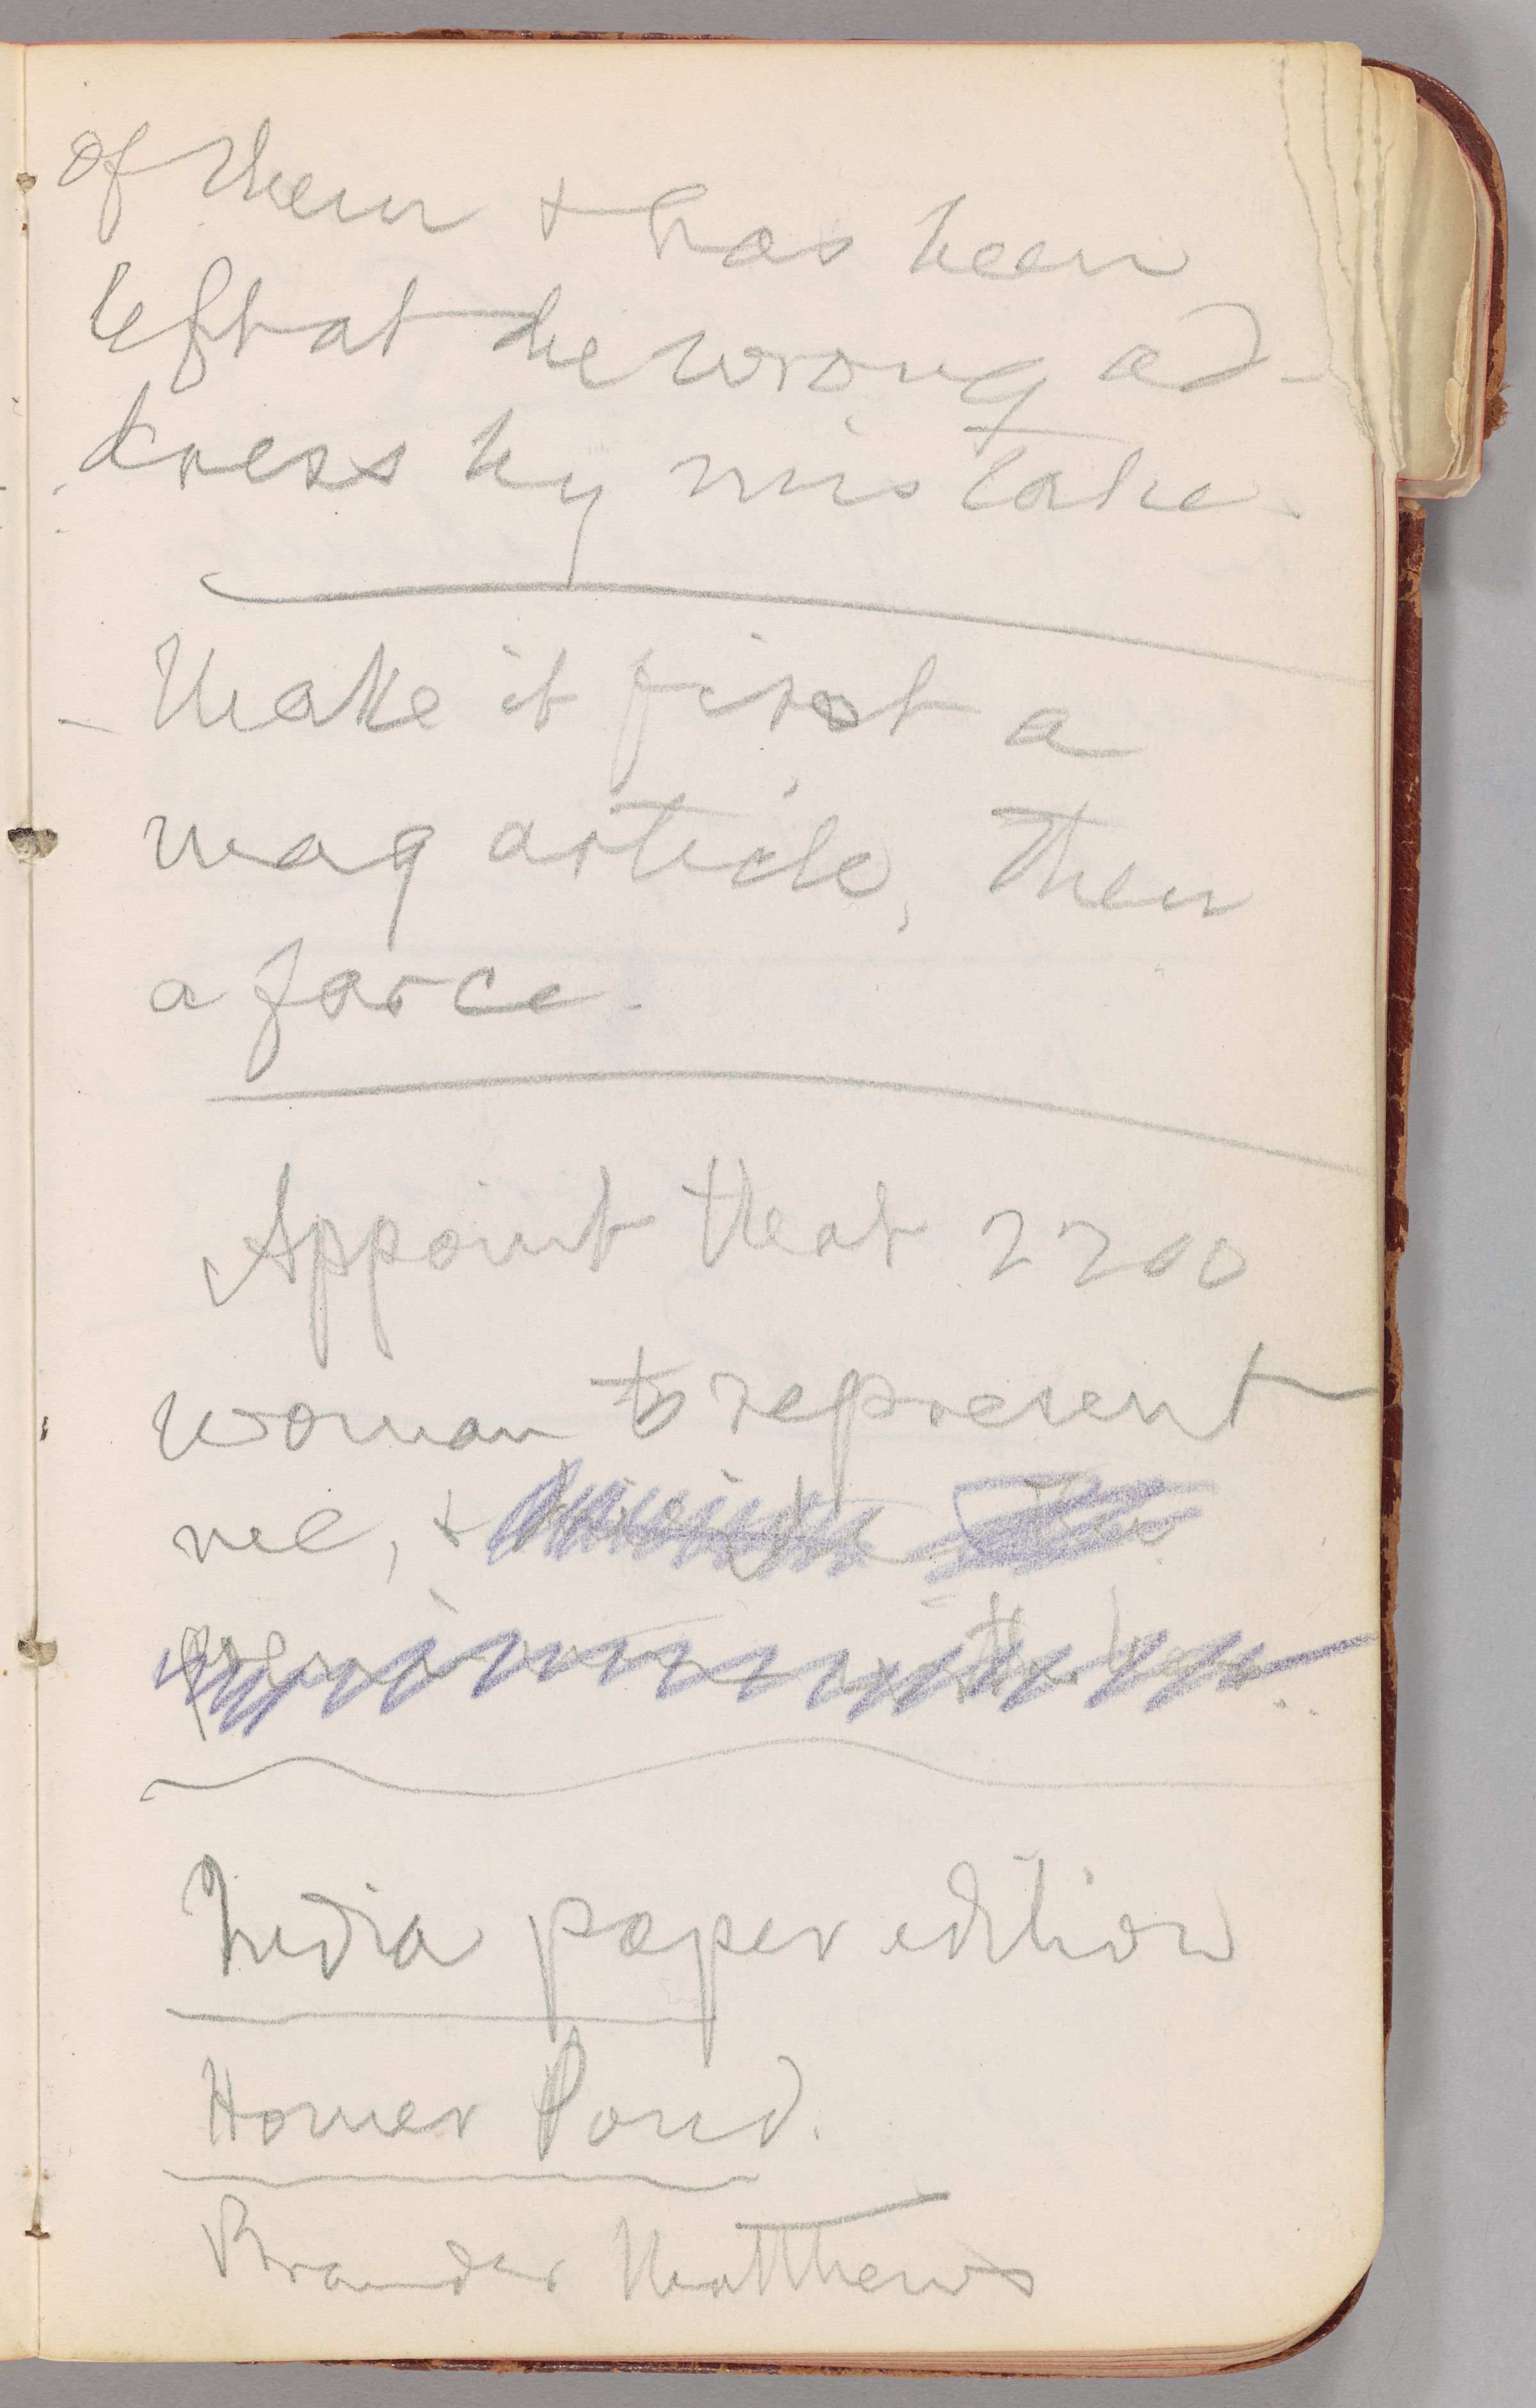 of them & has been
left at the wrong ad-
dress by mistake.
Make it first a
mag article, then
a farce.
Appoint that 2200
woman to represent
me, &
India paper edition
Homer Pond.
Brander Matthews